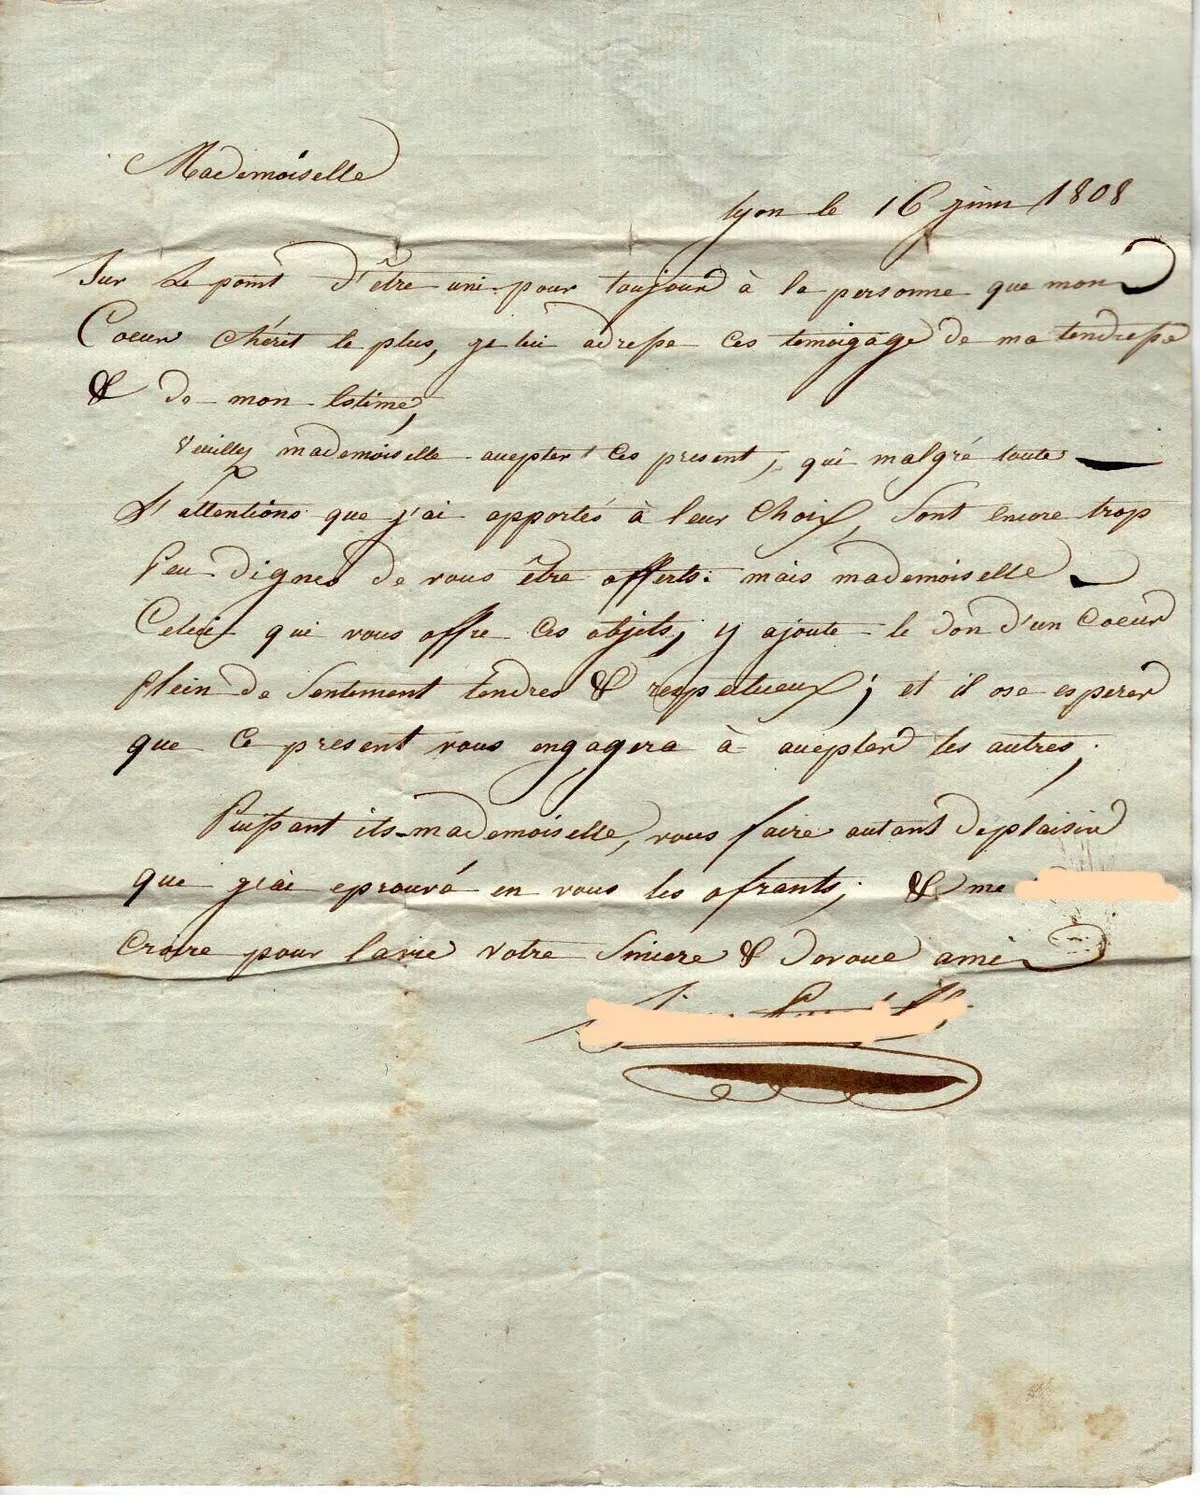 Mademoiselle
Lyon le 16 1808
Sur Le point d'être uni pour toujours à la personne que mon
Coeur chérit le plus, je lui adresse ces temoigage de ma tendresse
& de mon Estime,
Veuillez mademoiselle accepter ces present, qui malgré toute
L'attentions que j'ai apportés à leur choix, Sont encore trop
Peu dignes de vous être offerts: mais mademoiselle
Celui qui vous offre ces objets, y ajoute le don d'un Coeur
plein de Sentement tendres & respectueux; et il ose esperer
que ce present vous engagera à accepter les autres;
Puissant ils mademoiselle, vous faire autant de plaisir
que j'ai eprouvé en vous les ofrants; & me
Croire pour la vie Votre Sincere & devoué ami